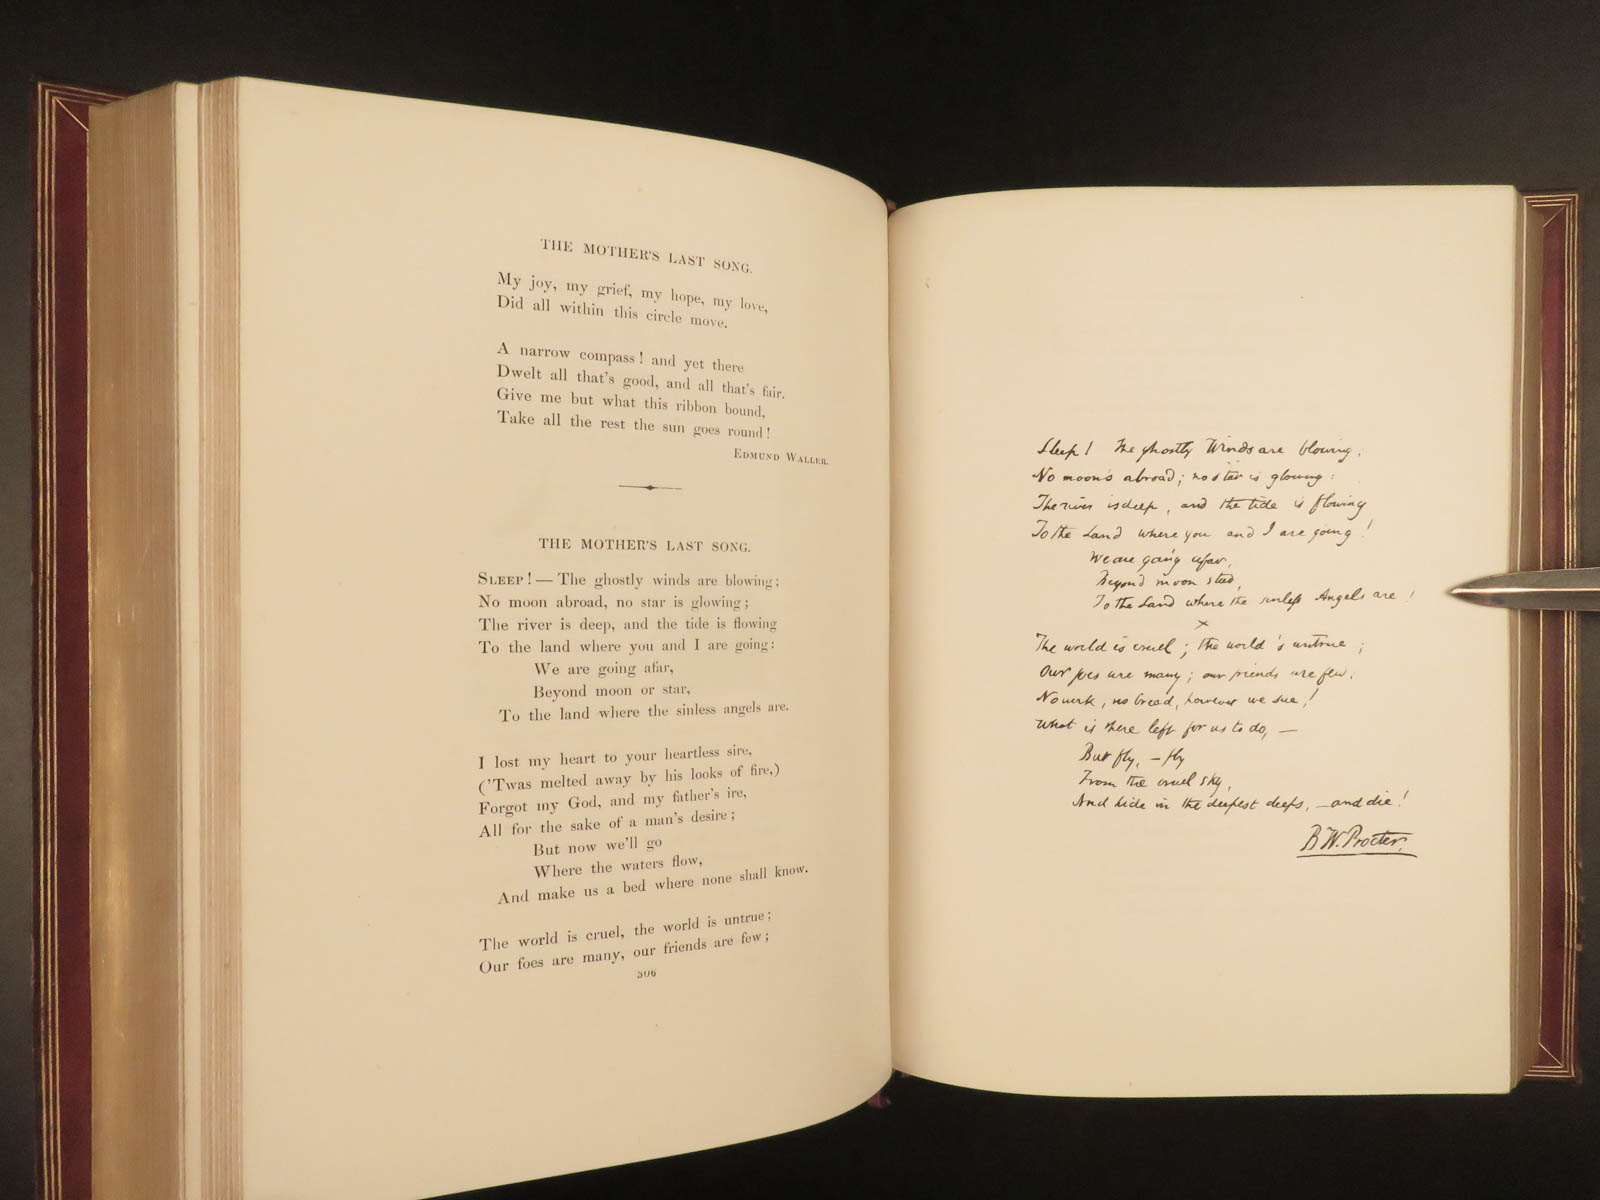 THE MOTHER'S LAST SONG.
My joy, my grief, my hope, my love,
Did all within this circle move.
A narrow compass! and yet there
Dwelt all that's good, and all that's fair.
Give me but what this ribbon bound,
Take all the rest the sun goes round!
EDMUND WALLER.
THE MOTHER'S LAST SONG.
SLEEP!—The ghostly winds are blowing;
No moon abroad, no star is glowing;
The river is deep, and the tide is flowing
To the land where you and I are going:
We are going afar,
Beyond moon or star,
To the land where the sinless angels are.
I lost my heart to your heartless sire,
('Twas melted away by his looks of fire,)
Forgot my God, and my father's ire,
All for the sake of a man's desire;
But now we'll go
Where the waters flow,
And make us a bed where none shall know.
The world is cruel, the world is untrue;
Our foes are many, our friends are few;
306
Sleep! The ghostly Winds are blowing.
No moon's abroad; no star is glowing:
The river is deep, and the tide is flowing
To the Land where you and I are going!
We are going afar,
Beyond moon
To the Land where the sinless Angels are!
x
The world is cruel; the world's untrue;
Our foes are many; our friends are few.
No work, no bread, however we sue!
What is there left for us to do, —
But fly, — fly
From the cruel sky,
And hide in the deepest deeps, — and die!
B W. Procter.